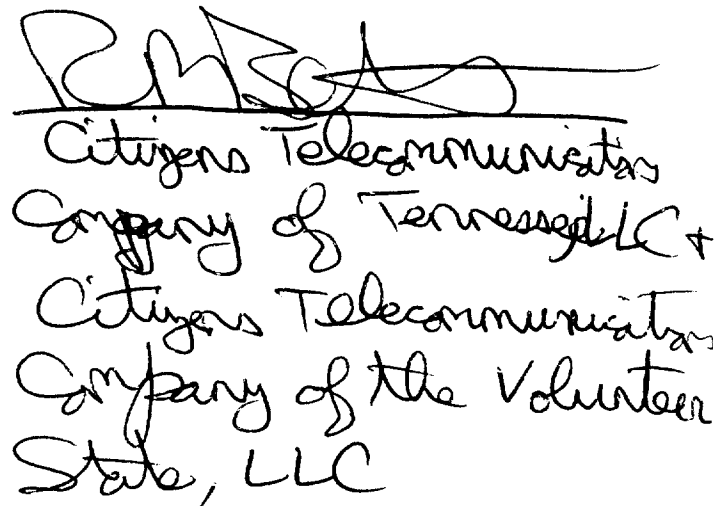 Citizens Telecommunications
Company of Tennessee, LLC +
Citizens Telecommunications
Company of the Volunteer
State, LLC